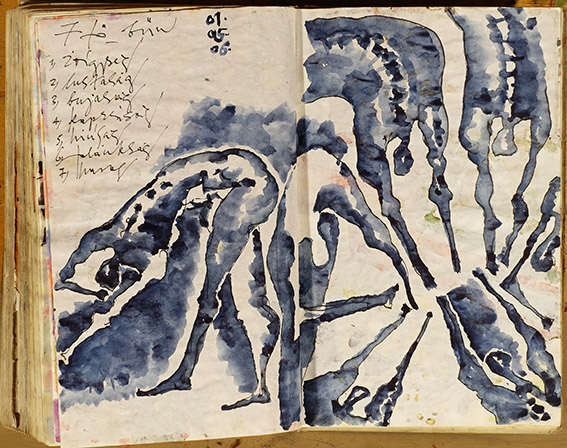 7 fő bűn
01.
06.
1, irigység
2, lustaság
3, bujaság
4, kapzsiság
5, hiúság
6, falánkság
7, harag